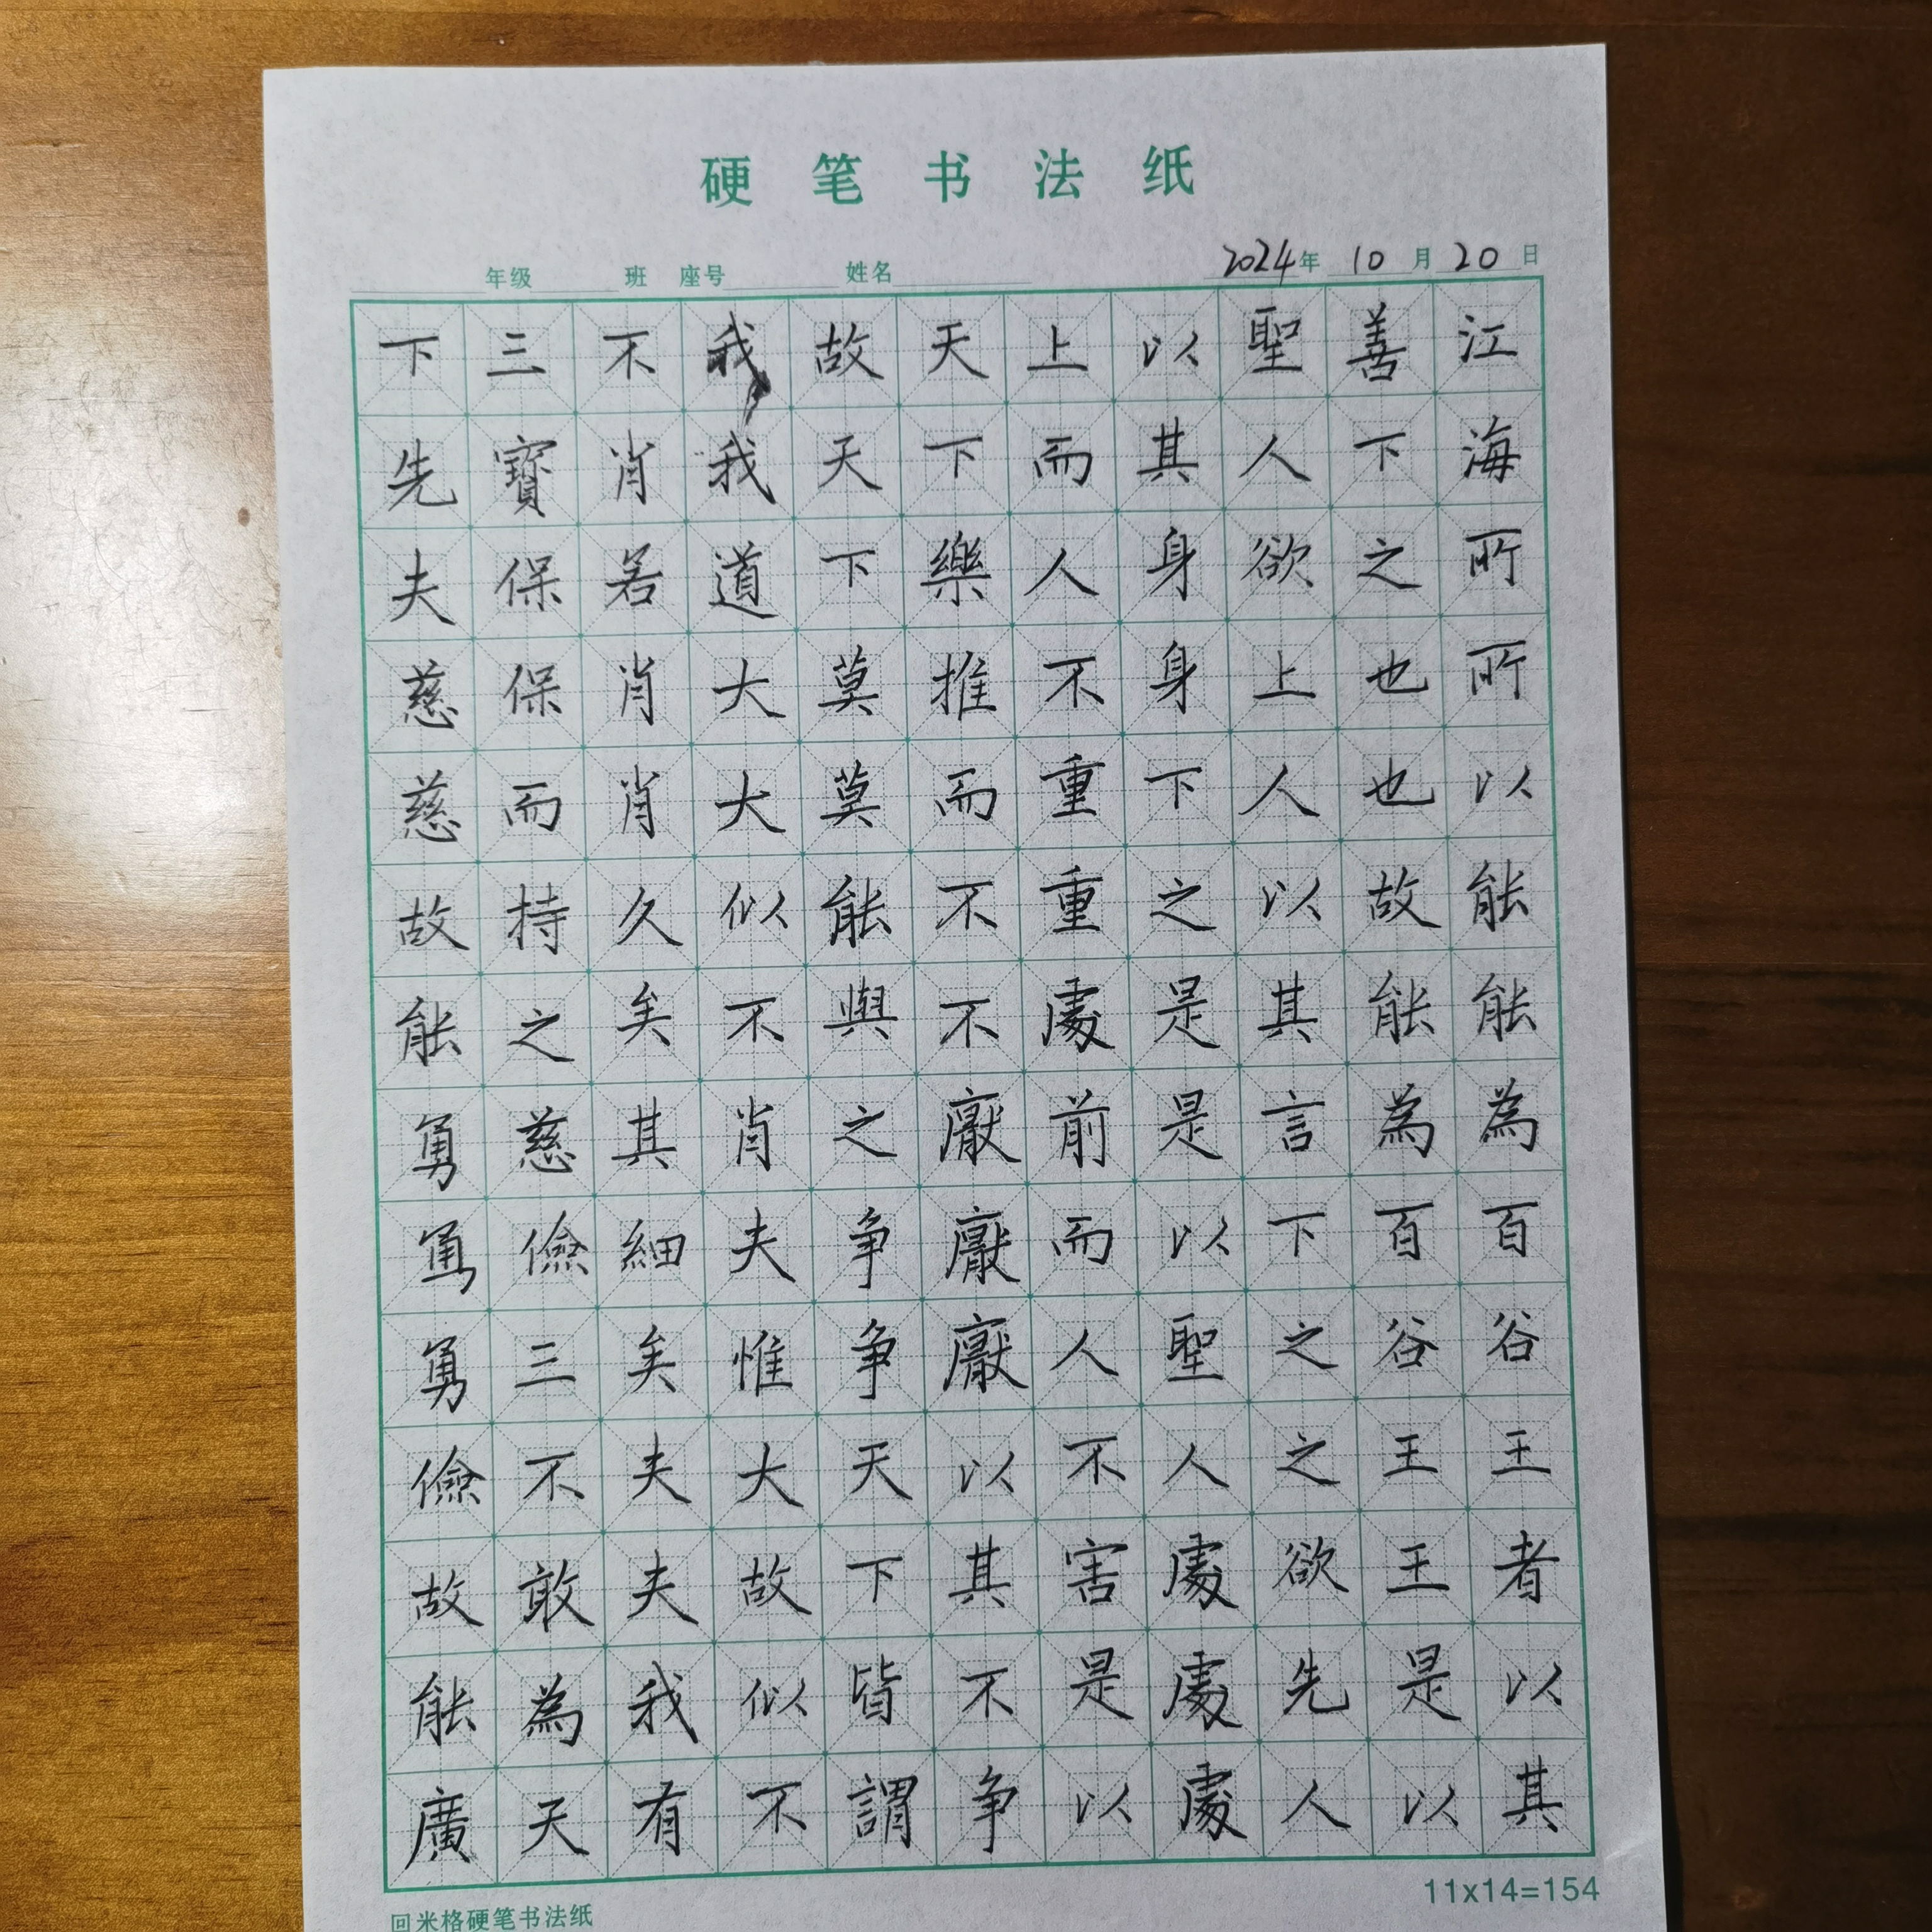 硬笔书法纸
年级 班 座号 姓名 2024年 10月20日
江海所所以能能為百谷王者以其
善下之也也故能為百谷王王是以
聖人欲上人以其言下之之欲先人
以其身身下之是是以聖人處處處
上而人不重重處前而人不害是以
天下樂推而不不厭厭厭以其不争
故天下莫莫能與之争争天下皆謂
我我道大大似不肖夫惟大故似不
不肖若肖肖久矣其細矣夫夫我有
三寶保保而持之慈儉三不敢為天
下先夫慈慈故能勇勇勇儉故能廣
回米格硬笔书法纸 11x14=154